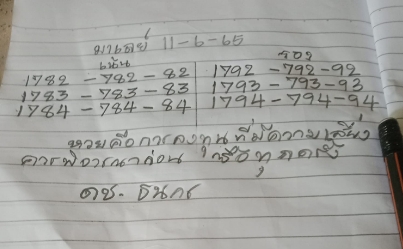 มาเลย์ 11-6-65
เน้น รอง
1782 - 782 - 82 1792 - 792 - 92
1783 - 783 - 83 1793 - 793 - 93
1784 - 784 - 84 1794 - 794 - 94
หวยคือการลงทุนที่มีความเสี่ยง
ควรพิจารณาก่อน ซื้อทุกครั้ง
ดช. ธนกร